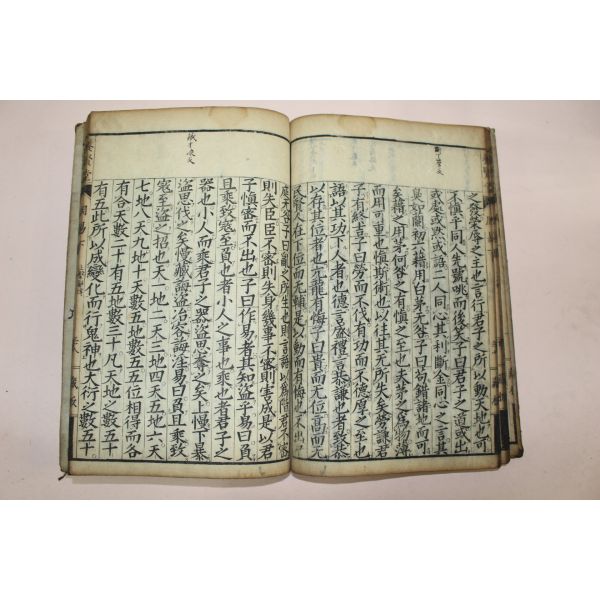 之發榮辱之主也言行君子之所以動天地也可
不愼乎同人先號咷而後笑子曰君子之道或出
或處或默或語二人同心其利斷金同心之言其
臭如蘭初六藉用白茅无咎子曰苟錯諸地而可
矣藉之用茅何咎之有愼之至也夫茅之爲物薄
而用可重也愼斯術也以往其无所失矣勞謙君
子有終吉子曰勞而不伐有功而不德厚之至也
語以其功下人者也德言盛禮言恭謙也者致恭
以存其位者也亢龍有悔子曰貴而无位高而无
民賢人在下位而无輔是以動而有悔也不出戶
庭无咎子曰亂之所生也則言語以爲階君不密
則失臣臣不密則失身幾事不密則害成是以君
子愼密而不出也子曰作易者其知盜乎易曰負
且乘致寇至負也者小人之事也乘也者君子之
器也小人而乘君子之器盜思奪之矣上慢下暴
盜思伐之矣慢藏誨盜冶容誨淫易曰負且乘致
寇至盜之招也天一地二天三地四天五地六天
七地八天九地十天數五地數五五位相得而各
有合天數二十有五地數三十凡天地之數五十
有五此所以成變化而行鬼神也大衍之數五十
周易下